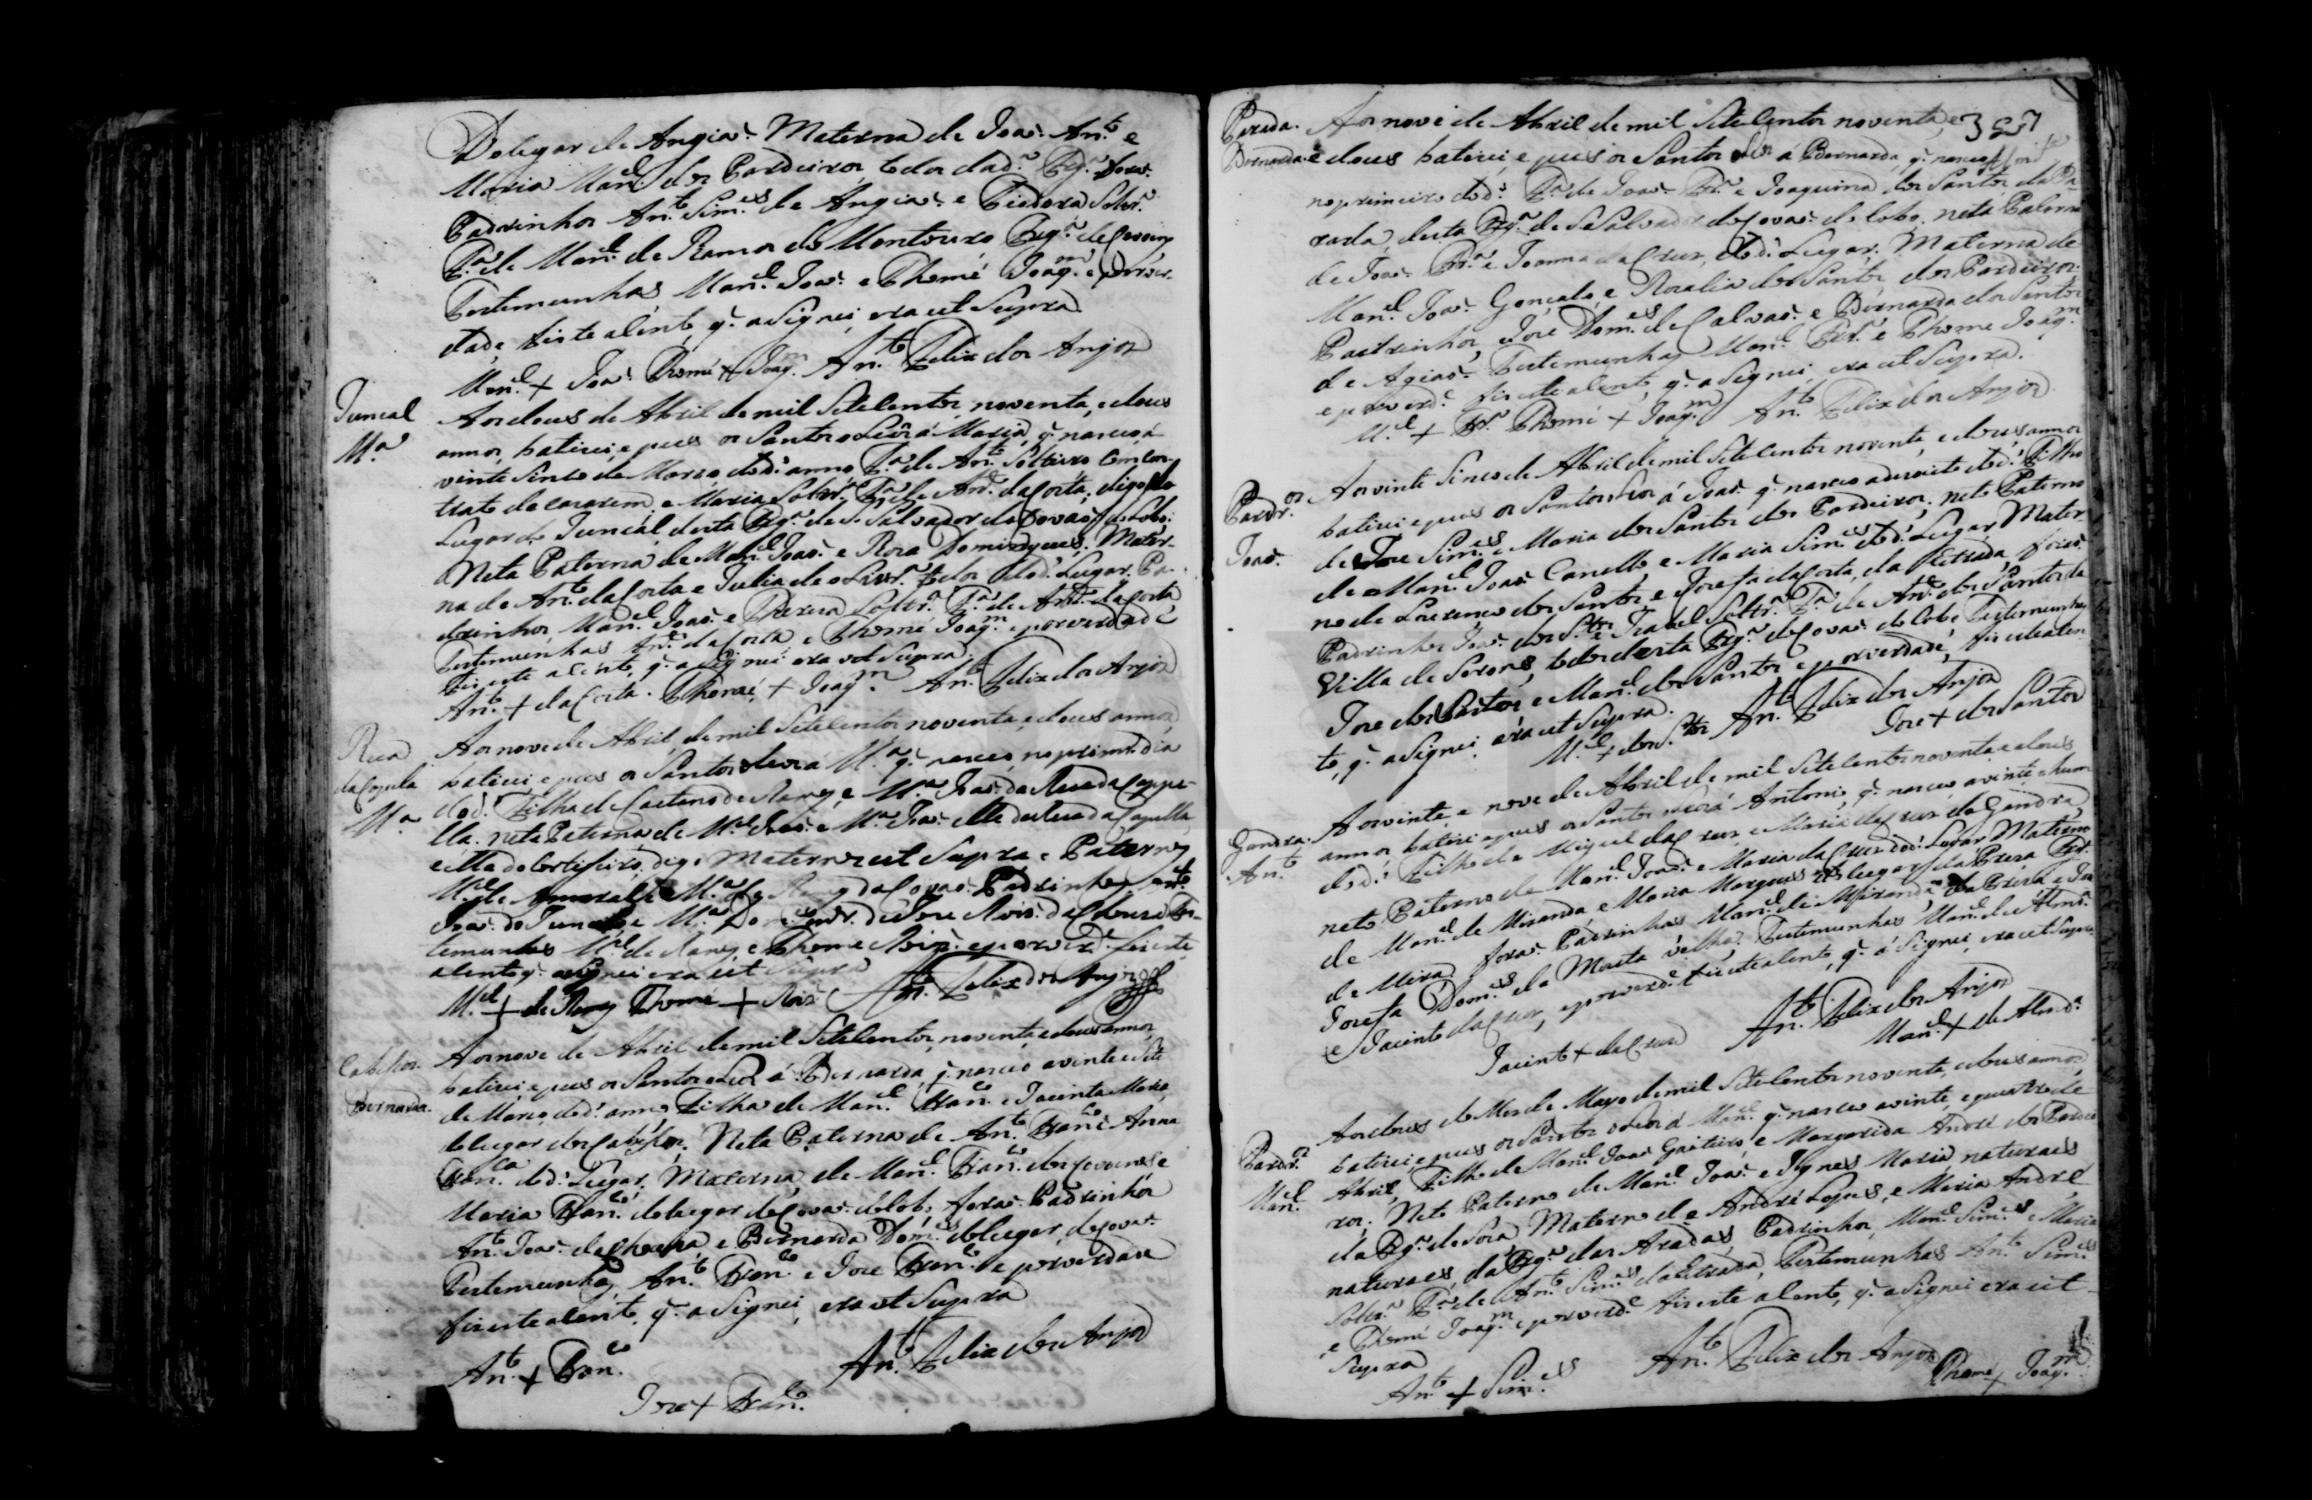 Do lugar de Angiaõ. Materna de Joaõ An.to e
Maria Man.el dos Cardeiros todos da d.a Frg.a foraõ
Padrinhos An.to Sim.es de Angiaõ e Teodora Soltr.a
F.a de Man.el de Ramos do Montouro Frg.a de
Testemunhas Man.el Joaõ e Thomé Joaq.m e por ver-
dade fis este acento, q. asignei, era ut Supra
Man.el + Joaõ Thomé + Joaq.m An.to Felix dos Anjos
Juncal
M.a
Aos dous de Abril de mil Setecentos, noventa, e dous
annos, batizei, e pus os Santos oLeos á Maria, q. nasceo á
vinte Sinco de Março, do d.o anno F.a de An.to Solteiro Com con-
trato de cazarem, e Maria Soltr.a F.a de An.to da Costa, digo do
Lugar do Juncal desta Frg.a de S. Salvador de Covaõ do Lobo.
Neta Paterna de Man.el Joaõ e Roza Domingues. Mater-
na de An.to da Costa e Julia de oLivr.a todos do d.o Lugar. Pa-
drinhos, Man.el Joaõ e Thereza Soltr.a F.a de An.to da Costa
Testemunhas An.to da Costa e Thomé Joaq.m e por verdade
fis este acento, q. asignei era ut Supra.
An.to + da Costa. Thomé + Joaq.m An.to Felix dos Anjos
Rua
da Capela
M.a
Aos nove de Abril de mil Setecentos noventa, e dous annos
batizei e pus os Santos oLeos á M.a q. nasceo no primr.o dia
do d.o Filha de Caetano de e M.a Joaõ da Rua da Cappe-
lla. neta Paterna de M.el Joaõ e M.a Joaõ elle da Rua da Capella
e ella do digo Materna ut Supra e Paterna
M.el de M.a de da Covaõ Padrinhos
Joaõ do Juncal e M.a de Joze Rois da Tes-
temunhas M.el de e Thome Rois. e por verd.e fis este
acento q. asignei era ut Supra
M.el + de Thomé + Rois An.to Felix dos Anjos
Cabessos.
Bernarda.
Aos nove de Abril de mil Setecentos, noventa e dous annos,
batizei, e pus os Santos oLeos á Bernarda, q. nasceo a vinte e Sete
de Março, do d.o anno, Filha de Man.el Fran.co e Jacinta Maria,
do lugar dos Cabessos, Neta Paterna de An.to Fran.co e Anna
Fran.ca do d.o Lugar, Materna, de Man.el Fran.co dos e
Maria Fran.ca do lugar de Covaõ do Lobo, foraõ Padrinhos
An.to Joaõ da e Bernarda Dom.es do lugar, de Covaõ.
Testemunhas, An.to Fran.co e Joze Fran.co e por verdade
fis este acento, q. asignei, era ut Supra
An.to + Fran.co An.to Felix dos Anjos
Joze + Fran.co
Parada.
Bernarda
Aos nove de Abril de mil Setecentos noventa, e
e dous batizei, e pus os Santos oLeos á Bernarda, q. nasceo
no primeiro do d.o F.a de Joaõ Fr.a e Joaquina dos Santos, da Pa-
rada, desta Frg.a de S. Salvador de Covaõ do Lobo. neta Paterna
de Joaõ Fr.a e Joanna da Crus, do d.o Lugar, Materna de
Man.el Joaõ Gonçalo, e Rosalia dos Santos dos Cardeiros.
Padrinhos, Joze Dom.es de Calvaõ, e Bernarda dos Santos
de Agiaõ. Testemunhas Man.el Fr.a e Thome Joaq.m
e por verd.e fis este acento, q. asignei, era ut Supra.
M.el + Fr.a Thomé + Joaq.m An.to Felix dos Anjos
Cardr.os
Joaõ.
Aos vinte Sinco de Abril de mil Setecentos noventa, e dous annos
batizei, e pus os Santos oLeos á Joaõ. q. nasceo a dezoito do d.o Filho
de Joze Sim.es e Maria dos Santos dos Cardeiros, neto Paterno
de Man.el Joaõ Canello e Maria Sim.es do d.o Lugar, Mater-
no de Lourenço dos Santos, e Josefa da Costa, da Estrada, foraõ
Padrinhos Joaõ dos S.tos e Izabel Soltr.a F.a de An.to dos Santos da
Villa de Sorons, todos desta Frg.a de Covaõ do Lobo Testemunhas
Joze dos Santos e Man.el dos Santos e por verdade, fis este acen-
to, q. asignei era ut Supra.
M.el + dos S.tos An.to Felix dos Anjos Joze + dos Santos
Gandra.
An.to
Aos vinte, e nove de Abril de mil Setecentos noventa, e dous
annos, batizei e pus os Santos oLeos á Antonio, q. nasceo a vinte e hum
do d.o Filho de Miguel da Crus, e Maria da Crus da Gandra,
neto Paterno de Man.el Joaõ e Maria da Crus do d.o Lugar, Materno
de Man.el de Miranda, e Maria Marques do lugar da Preza Frg.a
de Mira, foraõ Padrinhos Man.el de Miranda da Preza e Jo-
sefa Dom.es da Mouta velha, Testemunhas Man.el de Almd.a
e Jacinto da Crus, e por verd.e fis este acento, q. asignei, era ut Supra
Jacinto + da Crus An.to Felix dos Anjos
Man.el + de Almd.a
Cardr.os
Man.el
Aos dous do Mes de Mayo de mil Setecentos noventa, e dous annos
batizei, e pus os Santos oLeos á Man.el q. nasceo a vinte, e quatro de
Abril, Filho de Man.el Joaõ Gaiteiro, e Margarida André dos Cardei-
ros. Neto Paterno de Man.el Joaõ e Ignes Maria naturaes
da Frg.a de Soza, Materno de André Lopes, e Maria André
naturaes, da Frg.a das Aradas, Padrinhos, Man.el Sim.es e Maria
Soltr.a F.a de An.to Sim.es da Estrada, Testemunhas An.to Sim.es
e Thomé Joaq.m e por verd.e fis este acento, q. asignei era ut
Supra
An.to + Sim.es An.to Felix dos Anjos Thome + Joaq.m